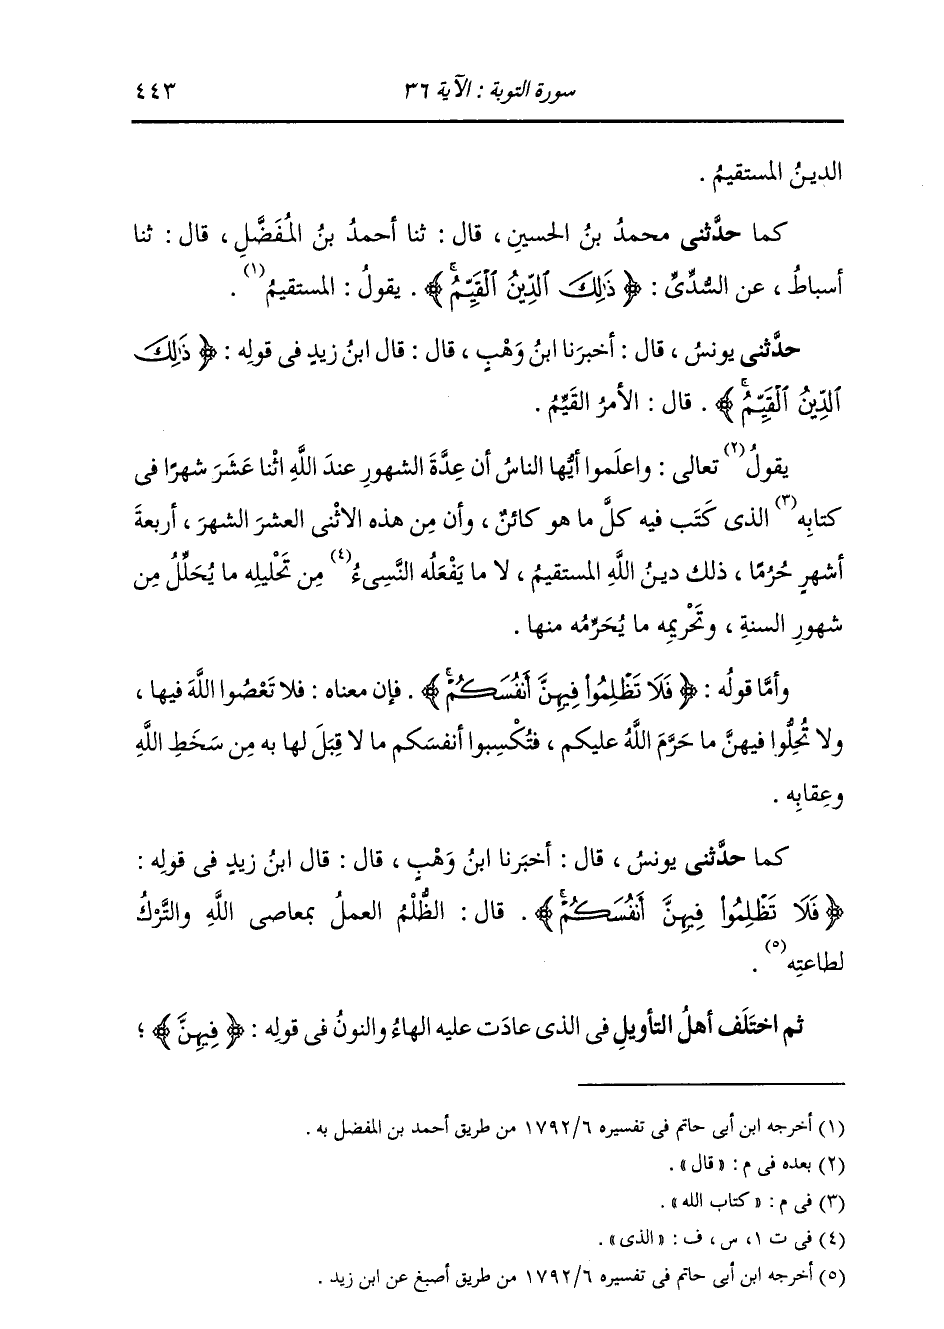 سورة التوبة : الآية ٣٦ ٤٤٣
الدينُ المستقيمُ .
كما حدَّثنى محمدُ بنُ الحسينِ ، قال : ثنا أحمدُ بنُ المُفَضَّلِ ، قال : ثنا
أسباطُ ، عن السُّدِّىِّ : ﴿ ذَٰلِكَ ٱلدِّينُ ٱلْقَيِّمُۚ ﴾ . يقولُ : المستقيمُ(١) .
حدَّثنى يونسُ ، قال : أخبرَنا ابنُ وَهْبٍ ، قال : قال ابنُ زيدٍ فى قولِه : ﴿ ذَٰلِكَ
ٱلدِّينُ ٱلْقَيِّمُۚ ﴾ . قال : الأمرُ القَيِّمُ .
يقولُ(٢) تعالى : واعلَموا أيُّها الناسُ أن عِدَّةَ الشهورِ عندَ اللَّهِ اثْنا عَشَرَ شهرًا فى
كتابِه(٣) الذى كَتَب فيه كلَّ ما هو كائنٌ ، وأن مِن هذه الاثْنى العشرَ الشهرَ ، أربعةَ
أشهرٍ حُرُمًا ، ذلك دينُ اللَّهِ المستقيمُ ، لا ما يَفْعَلُه النَّسِىءُ(٤) مِن تَحْليلِه ما يُحَلِّلُ مِن
شهورِ السنةِ ، وتَحْرِيمِه ما يُحَرِّمُه منها .
وأمَّا قولُه : ﴿ فَلَا تَظْلِمُوا۟ فِيهِنَّ أَنفُسَكُمْۚ ﴾ . فإن معناه : فلا تَعْصُوا اللَّهَ فيها ،
ولا تُحِلُّوا فيهنَّ ما حَرَّمَ اللَّهُ عليكم ، فتُكْسِبوا أنفسَكم ما لا قِبَلَ لها به مِن سَخَطِ اللَّهِ
وعِقابِه .
كما حدَّثنى يونسُ ، قال : أخبَرنا ابنُ وَهْبٍ ، قال : قال ابنُ زيدٍ فى قولِه :
﴿ فَلَا تَظْلِمُوا۟ فِيهِنَّ أَنفُسَكُمْۚ ﴾ . قال : الظُّلْمُ العملُ بمعاصى اللَّهِ والتَّرْكُ
لطاعتِه(٥) .
ثم اختَلَف أهلُ التأويلِ فى الذى عادَت عليه الهاءُ والنونُ فى قولِه : ﴿ فِيهِنَّ ﴾ ؛
(١) أخرجه ابن أبى حاتم فى تفسيره ١٧٩٢/٦ من طريق أحمد بن المفضل به .
(٢) بعده فى م : « قال » .
(٣) فى م : « كتاب الله » .
(٤) فى ت ١، س ، ف : « الذى » .
(٥) أخرجه ابن أبى حاتم فى تفسيره ١٧٩٢/٦ من طريق أصبغ عن ابن زيد .